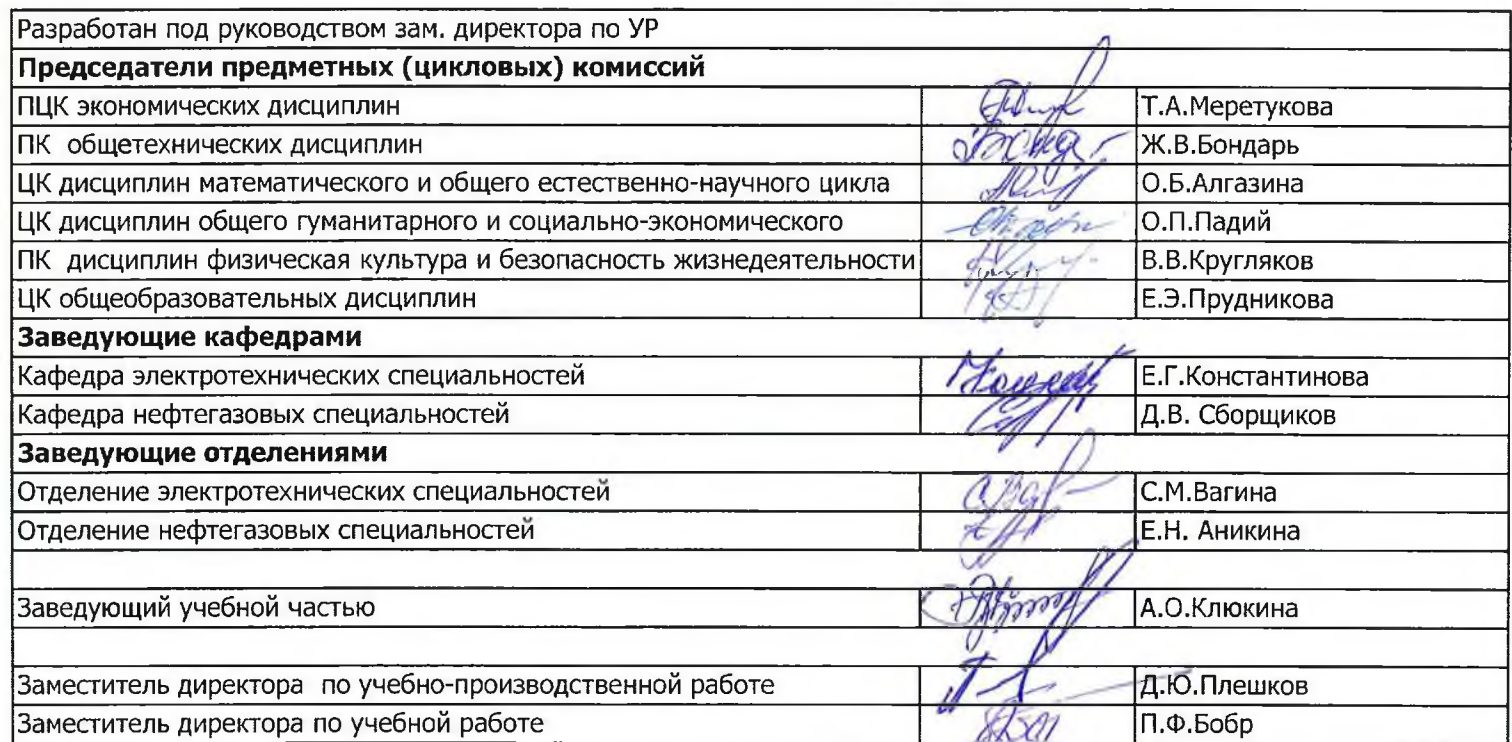 Разработан под руководством зам. директора по УР
Председатели предметных (цикловых) комиссий
ПЦК экономических дисциплин Т.А.Меретукова
ПК общетехнических дисциплин Ж.В.Бондарь
ЦК дисциплин математического и общего естественно-научного цикла О.Б.Алгазина
ЦК дисциплин общего гуманитарного и социально-экономического О.П.Падий
ПК дисциплин физическая культура и безопасность жизнедеятельности В.В.Кругляков
ЦК общеобразовательных дисциплин Е.Э.Прудникова
Заведующие кафедрами
Кафедра электротехнических специальностей Е.Г.Константинова
Кафедра нефтегазовых специальностей Д.В. Сборщиков
Заведующие отделениями
Отделение электротехнических специальностей С.М.Вагина
Отделение нефтегазовых специальностей Е.Н. Аникина
Заведующий учебной частью А.О.Клюкина
Заместитель директора по учебно-производственной работе Д.Ю.Плешков
Заместитель директора по учебной работе П.Ф.Бобр